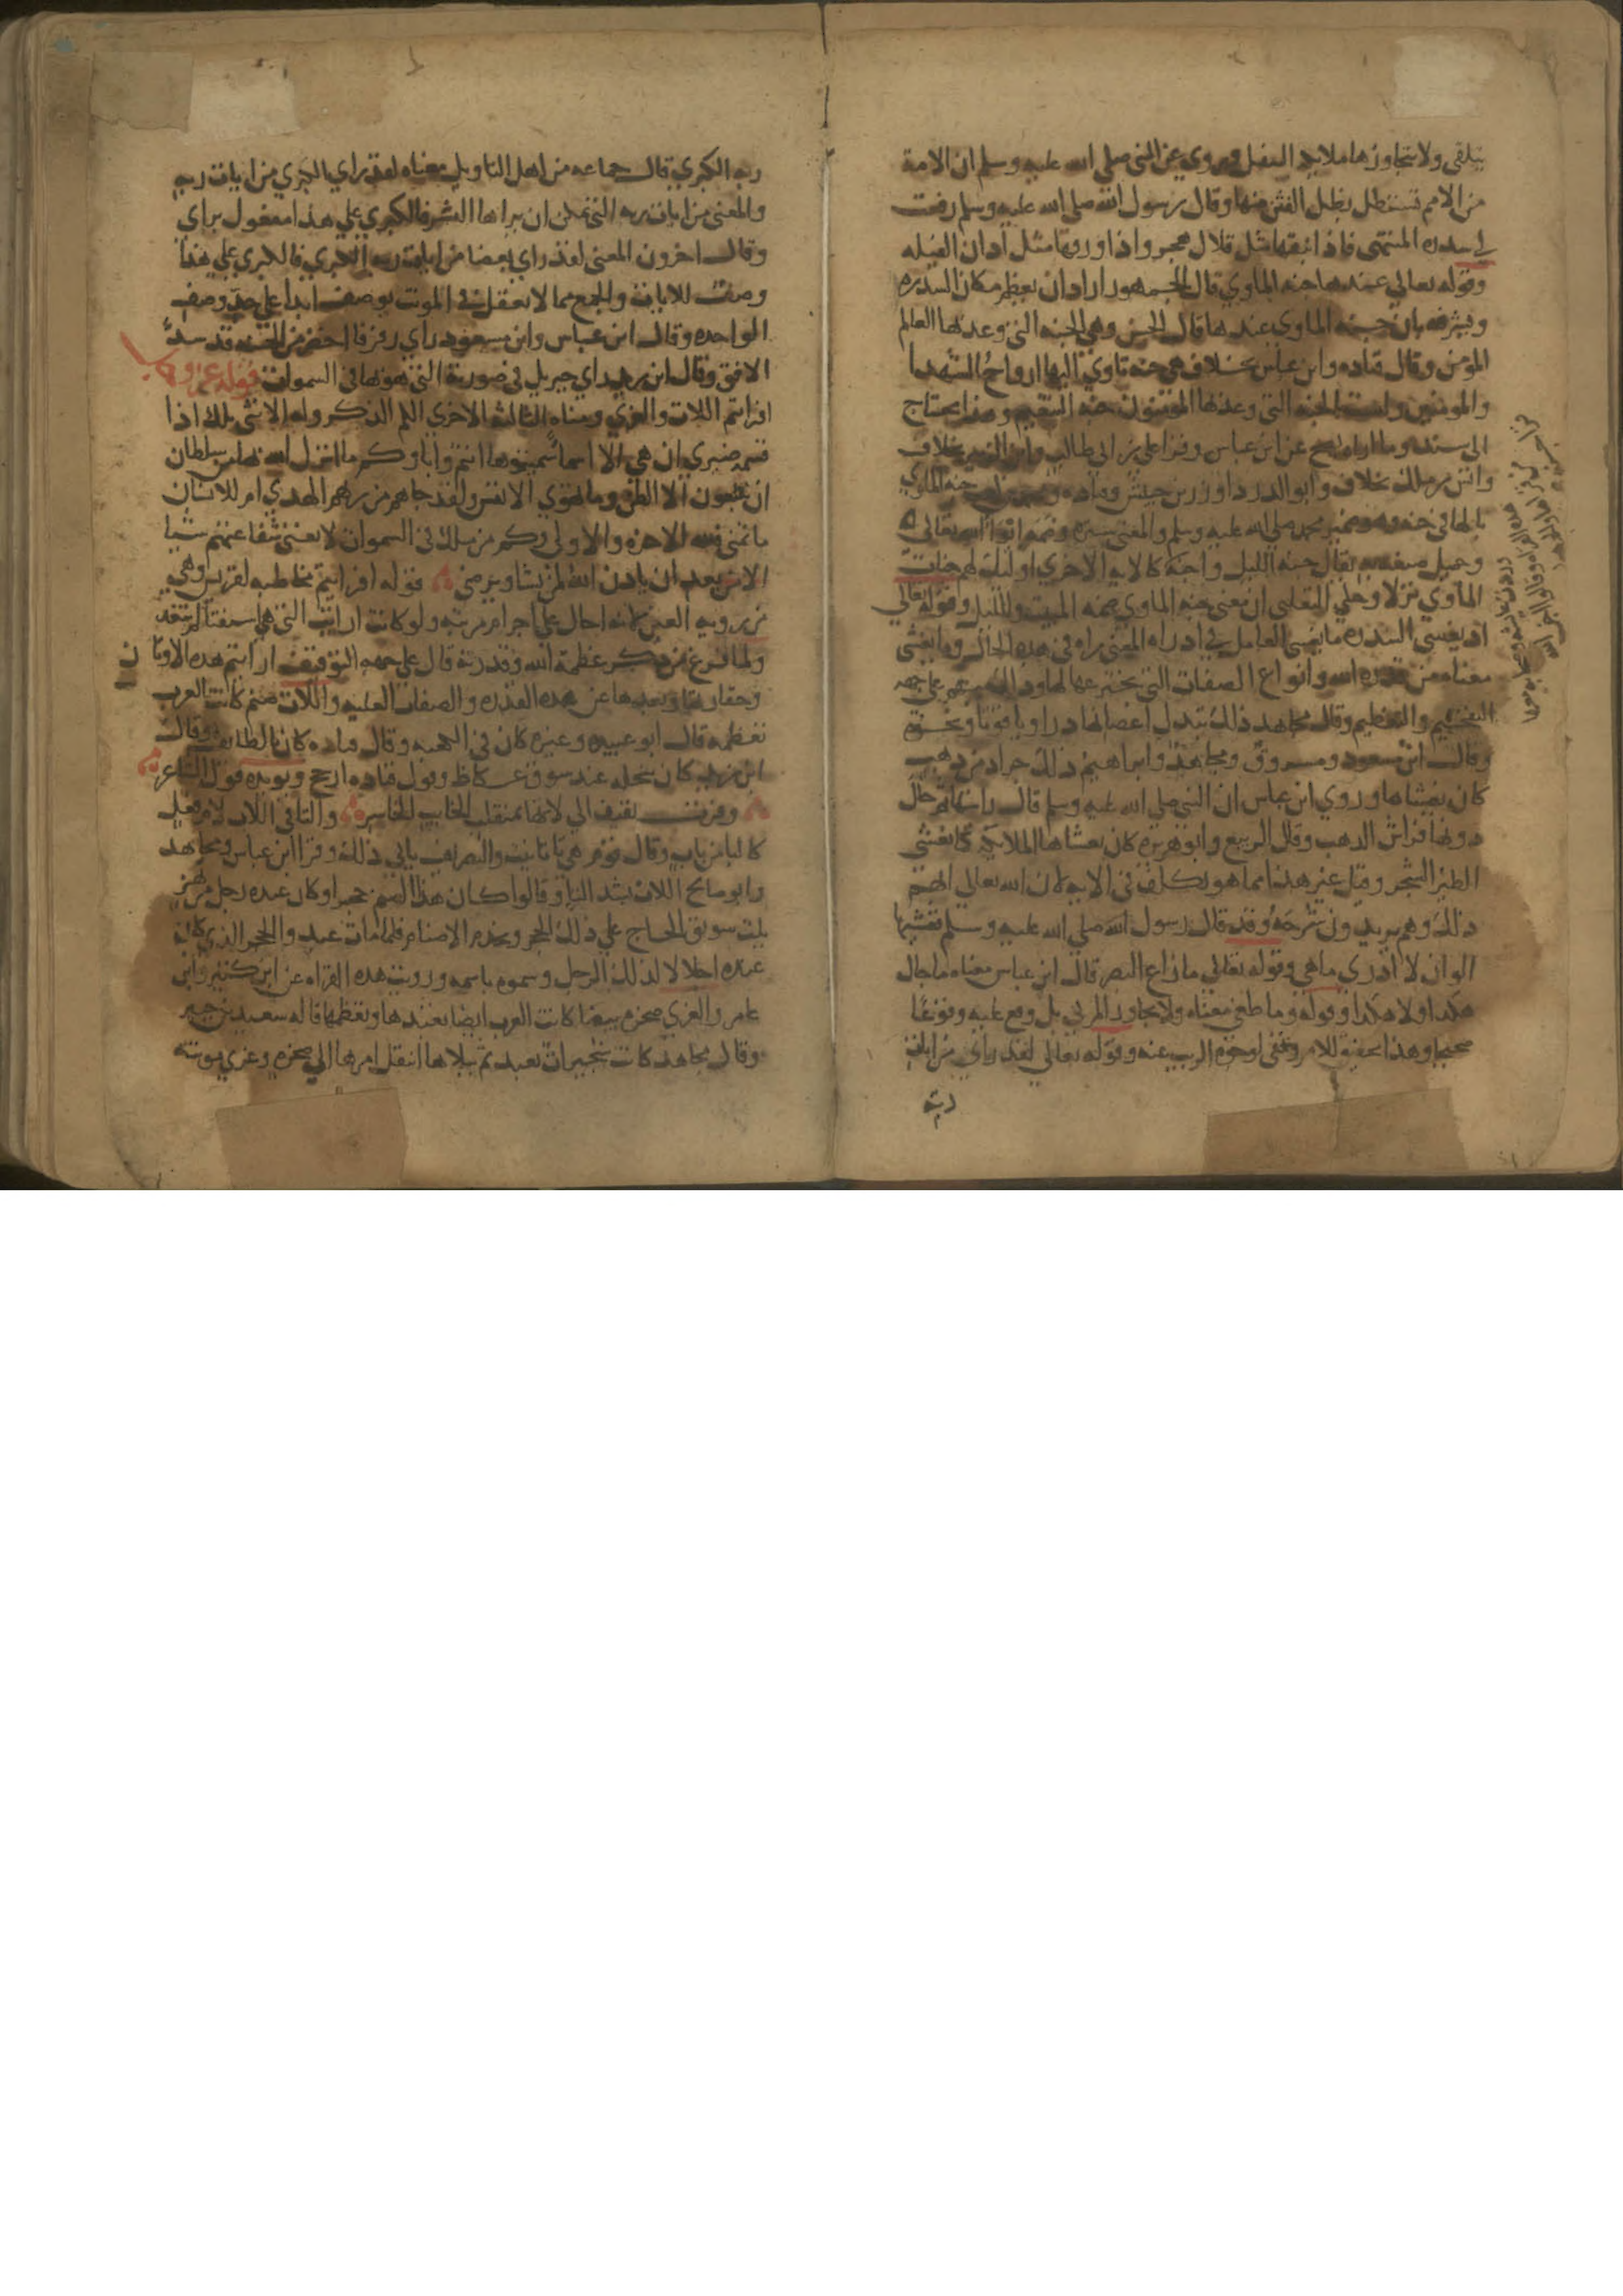 يتلقى ولا يتجاوزها ملايكه العلو وروي عن النبي صلي الله عليه وسلم ان الامة
من الامم تستظل بظل الفنن منها وقال رسول الله صلى الله عليه وسلم رفعت
لي سدره المنتهى فاذا نبقها مثل قلال هجر واذا ورقها مثل اذان الفيله
وقوله تعالي عندها جنه الماوي قال الجمهور اراد ان يعظم مكان السدره
ويشرفه بان جنه الماوي عندها قال الحسن وهي الجنه التي وعد بها العالم
المؤمن وقال قتاده وابن عباس بخلاف هي جنه تاوي اليها ارواح الشهدا
والمومنين وليست الجنه التي وعد بها المؤمنون جنه النعيم وهذا يحتاج
الى سند وما اراه يصح عن ابن عباس وقرا علي بن ابي طالب وابن الزبير بخلاف
وانس بن ملك بخلاف وابو الدردا وزر بن حبيش وقتاده ومحمد بن كعب جنه الماوي
بالها في جنه وهو ضمير محمد صلى الله عليه وسلم والمعنى ستره وضمه ايوا الله تعالى
وجميل صنعه به يقال جنه الليل واجنه كالايه الاخري اولئك لهم جنات
الماوي نزلا وحكي الثعلبي ان معنى جنه الماوي ضمه المبيت والليل وقوله تعالي
اذ يغشي السدره ما يغشي العامل في اذ راه المعنى راه في هذه الحال وما يغشى
معناه من قدره الله وانواع الصفات التي يخترعها لها وذلك مبهم علي جهه
التفخيم والتعظيم وقال مجاهد ذلك تبدل اغصانها درا وياقوتا ونحوه
وقال ابن مسعود ومسروق ومجاهد وابراهيم ذلك جراد من ذهب
كان يغشاها وروي ابن عباس ان النبي صلي الله عليه وسلم قال رايتها ثم حال
دونها فراش الذهب وقال الربيع وابو هريره كان تغشاها الملايكه كما تغشى
الطير الشجر وقيل غير هذا مما هو تكلف في الايه لان الله تعالي ابهم
ذلك وهم يريدون شرحه وقد قال رسول الله صلي الله عليه وسلم فغشيها
الوان لا ادري ما هي وقوله تعالي ما زاغ البصر قال ابن عباس معناه ما جال
هكذا ولا هكذا وقوله وما طغى معناه ولا تجاوز المرئي بل وقع عليه وقوعا
صحيحا وهذا تحقيق للامر ونفي لوجوه الريب عنه وقوله تعالي لقد راي من ايات
ربه
ربه الكبري قال جماعه من اهل التاويل معناه لقد راي الكبري من ايات ربه
والمعنى من ايات ربه التي يمكن ان يراها البشر فالكبري علي هذا مفعول براي
وقال اخرون المعنى لقد راي بعضا من ايات ربه الكبري فالكبري علي هذا
وصف للايات والجمع مما لا يعقل في المونث يوصف ابدا على حد وصف
الواحده وقال ابن عباس وابن مسعود راي رفرفا اخضر من الجنه قد سد
الافق وقال ابن زيد راي جبريل في صورته التي هو بها في السموات قوله عز وجل
افرايتم اللات والعزي ومناه الثالثه الاخري الكم الذكر وله الانثى تلك اذا
قسمه ضيزي ان هي الا اسما سميتموها انتم واباوكم ما انزل الله بها من سلطان
ان يتبعون الا الظن وما تهوي الانفس ولقد جاهم من ربهم الهدي ام للانسان
ما تمنى فلله الاخره والاولي وكم من ملك في السموات لا تغني شفاعتهم شيا
الا من بعد ان ياذن الله لمن يشا ويرضى قوله افرايتم مخاطبه لقريش وهي
من رويه العين لانه احال على اجرام مرئيه ولو كانت ارايت التي هي استفتا لم تتعد
ولما فرغ من ذكر عظمة الله وقدرته قال علي جهه التوقيف ارايتم هذه الاوثان
وحقارتها وبعدها عن هذه القدره والصفات العليه واللات صنم كانت العرب
تعظمه قال ابو عبيده وغيره كان في الكعبه وقال قتاده كان بالطايف وقال
ابن زيد كان بنخله عند سوق عكاظ وقول قتاده ارجح ويويده قول الشاعر
وفرت ثقيف الي لاتها بمنقلب الخايب الخاسر والتا في اللات لام فعل
كالبا من باب وقال قوم هي تا تانيث والتصريف يابي ذلك وقرا ابن عباس ومجاهد
وابو صالح اللات بشد التا وقالوا كان هذا الصنم حجرا وكان عنده رجل من بهز
يلت سويق الحاج علي ذلك الحجر ويخدم الاصنام فلما مات عبدوا الحجر الذي كان
عنده اجلالا لذلك الرجل وسموه باسمه ورويت هذه القراه عن ابن كثير وابن
عامر والعزي صخره بيضا كانت العرب ايضا تعبدها وتعظمها قاله سعيد بن جبير
وقال مجاهد كانت شجيرات تعبد ثم ببلاها انتقل امرها الي صخره وعزي مونثه